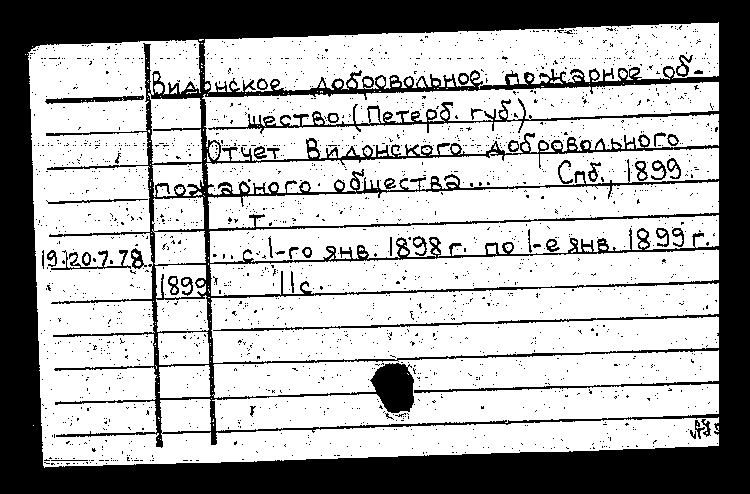 Видонское добровольное пожарное об-
щество. (Петерб. губ.).
Отчет Видонского добровольного
пожарного общества... Спб., 1899.
т.
19.120.7.78 ... с 1-го янв. 1898 г. по 1-е янв. 1899 г.
1899 11 с.